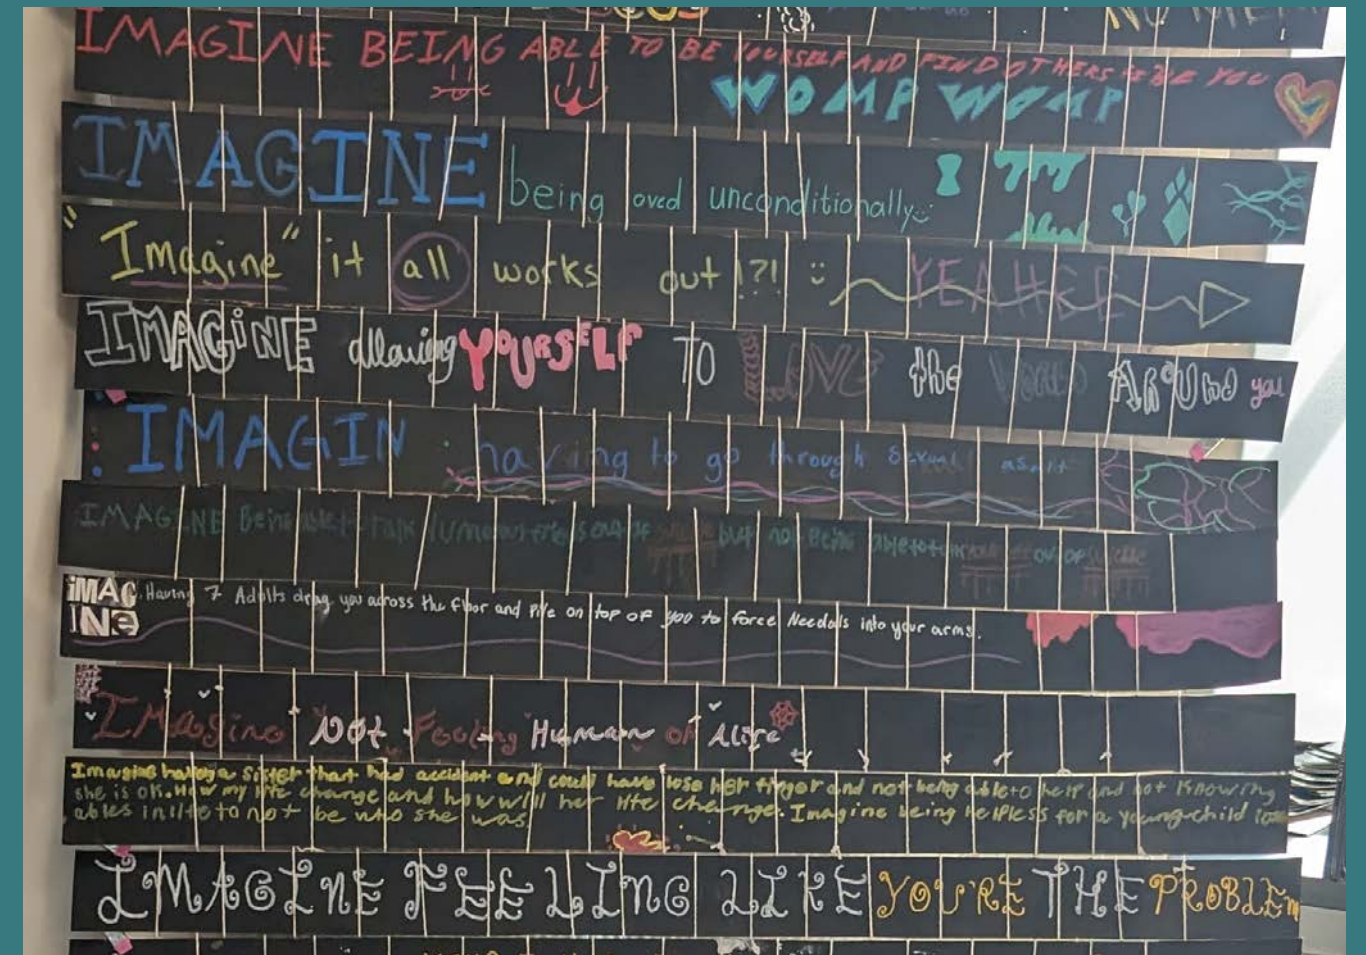 IMAGINE BEING ABLE TO BE YOURSELF AND FIND OTHERS YOU
WOMP WOMP
IMAGINE being oved unconditionally
"Imagine" it all works out !?! YEAHEE
IMAGiNE allowing YOURSELF TO LOVE the WORLD AROUND you
IMAGIN having to go through Sexual asalt
IMAGINE Being able to talk but not Being able to talk out of
iMAG
INe
Having 7 Adults drag you across the floor and Pile on top of you to force Needals into your arms.
Imagine Not Feeling Human or Alive
Imagine having a sister that had accident and could have lose her finger and not being able to help and not Knowing
she is OK. How my life change and how will her life change. Imagine being helpless for a young child
ables in life to not be who she was.
IMAGINE FEELING LIKE YOU'RE THE PROBLEm